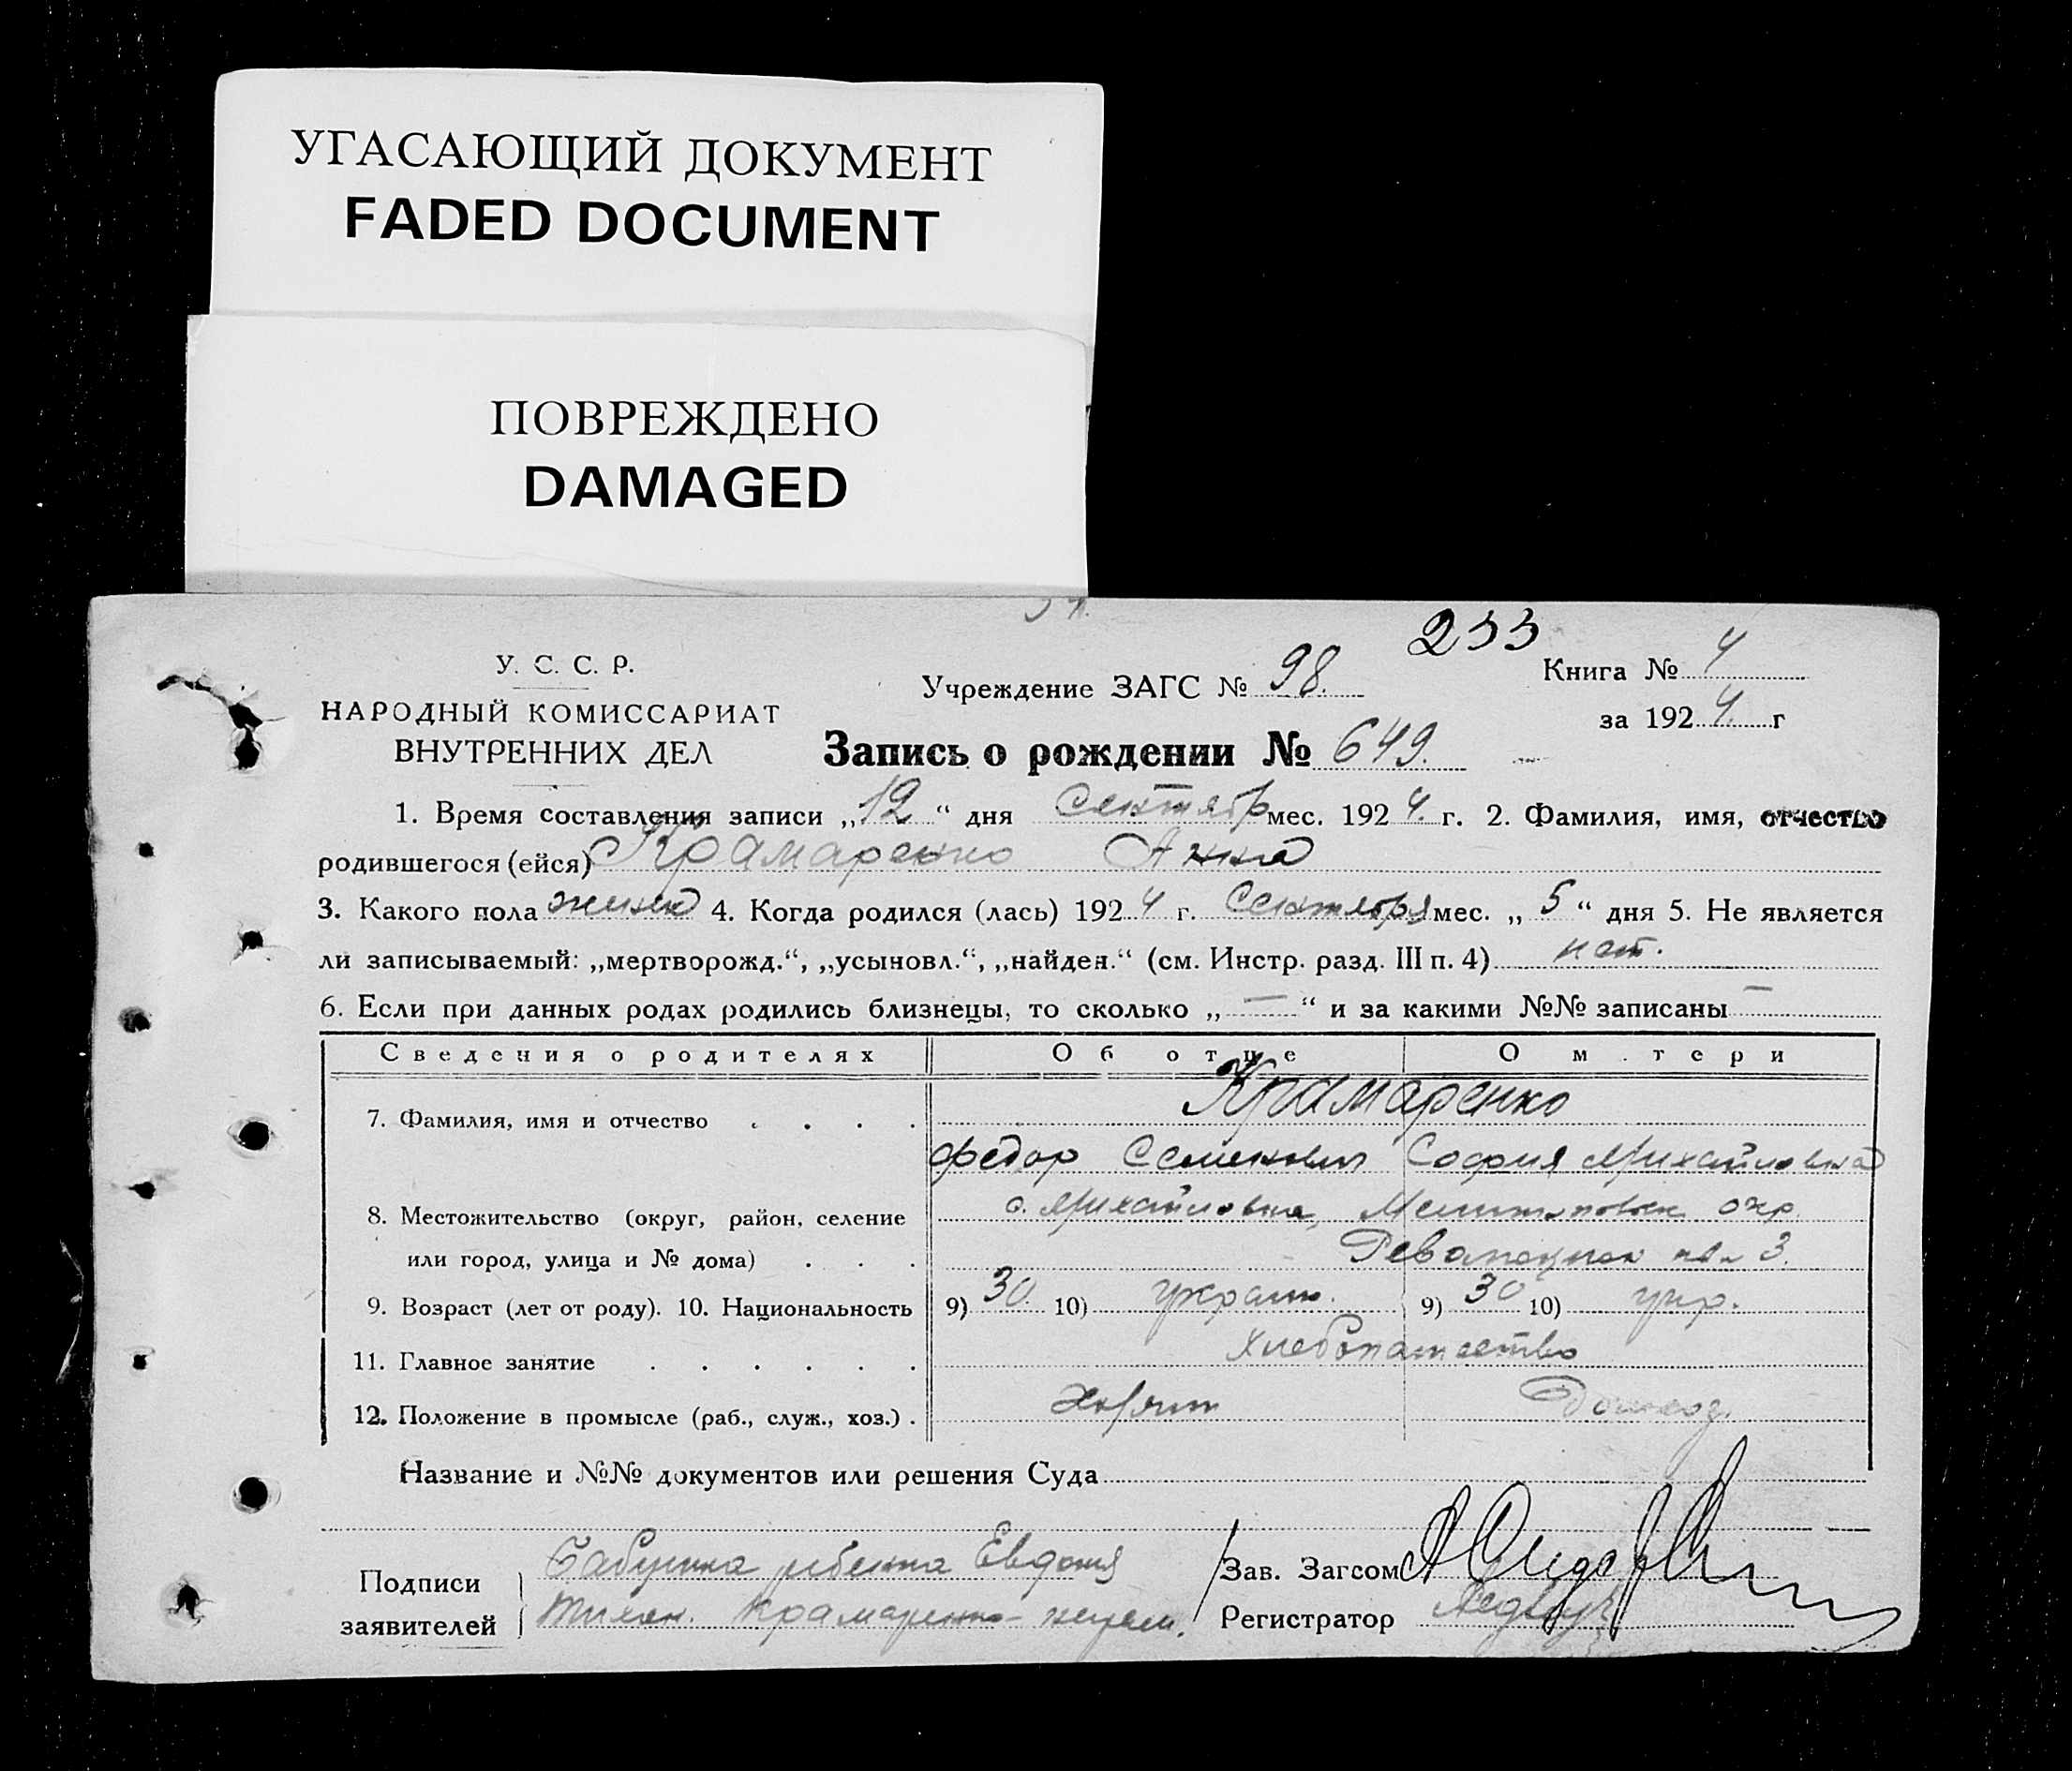 УГАСАЮЩИЙ ДОКУМЕНТ
FADED DOCUMENT
ПОВРЕЖДЕНО
DAMAGED
233
У. С. С. Р.
НАРОДНЫЙ КОМИССАРИАТ
ВНУТРЕННИХ ДЕЛ
Учреждение ЗАГС № 98.
Книга № 4
за 192 4. г
Запись о рождении № 649.
1. Время составления записи „12“ дня Сентябр мес. 192 4. г. 2. Фамилия, имя, отчество
родившегося (ейся) Крамаренко Анна
3. Какого пола женск 4. Когда родился (лась) 192 4 г. Сентября мес. „5“ дня 5. Не является
ли записываемый: „мертворожд.“, „усыновл.“, „найден.“ (см. Инстр. разд. III п. 4) нет.
6. Если при данных родах родились близнецы, то сколько „—“ и за какими №№ записаны —
Сведения о родителях Об отце О м тери
7. Фамилия, имя и отчество . . . . Крамаренко
Федор Семенович София Михайловна
8. Местожительство (округ, район, селение с. Михайловка, Мелитопольск окр.
или город, улица и № дома) . . . 3.
9. Возраст (лет от роду). 10. Национальность 9) 30. 10) украин. 9) 30 10) укр.
11. Главное занятие . . . . . . Хлебопашество
12. Положение в промысле (раб., служ., хоз.) . Домхоз.
Название и №№ документов или решения Суда
Подписи заявителей
Бабушка ребенка Евдокия
Крамаренко неграм.
Зав. Загсом
Регистратор